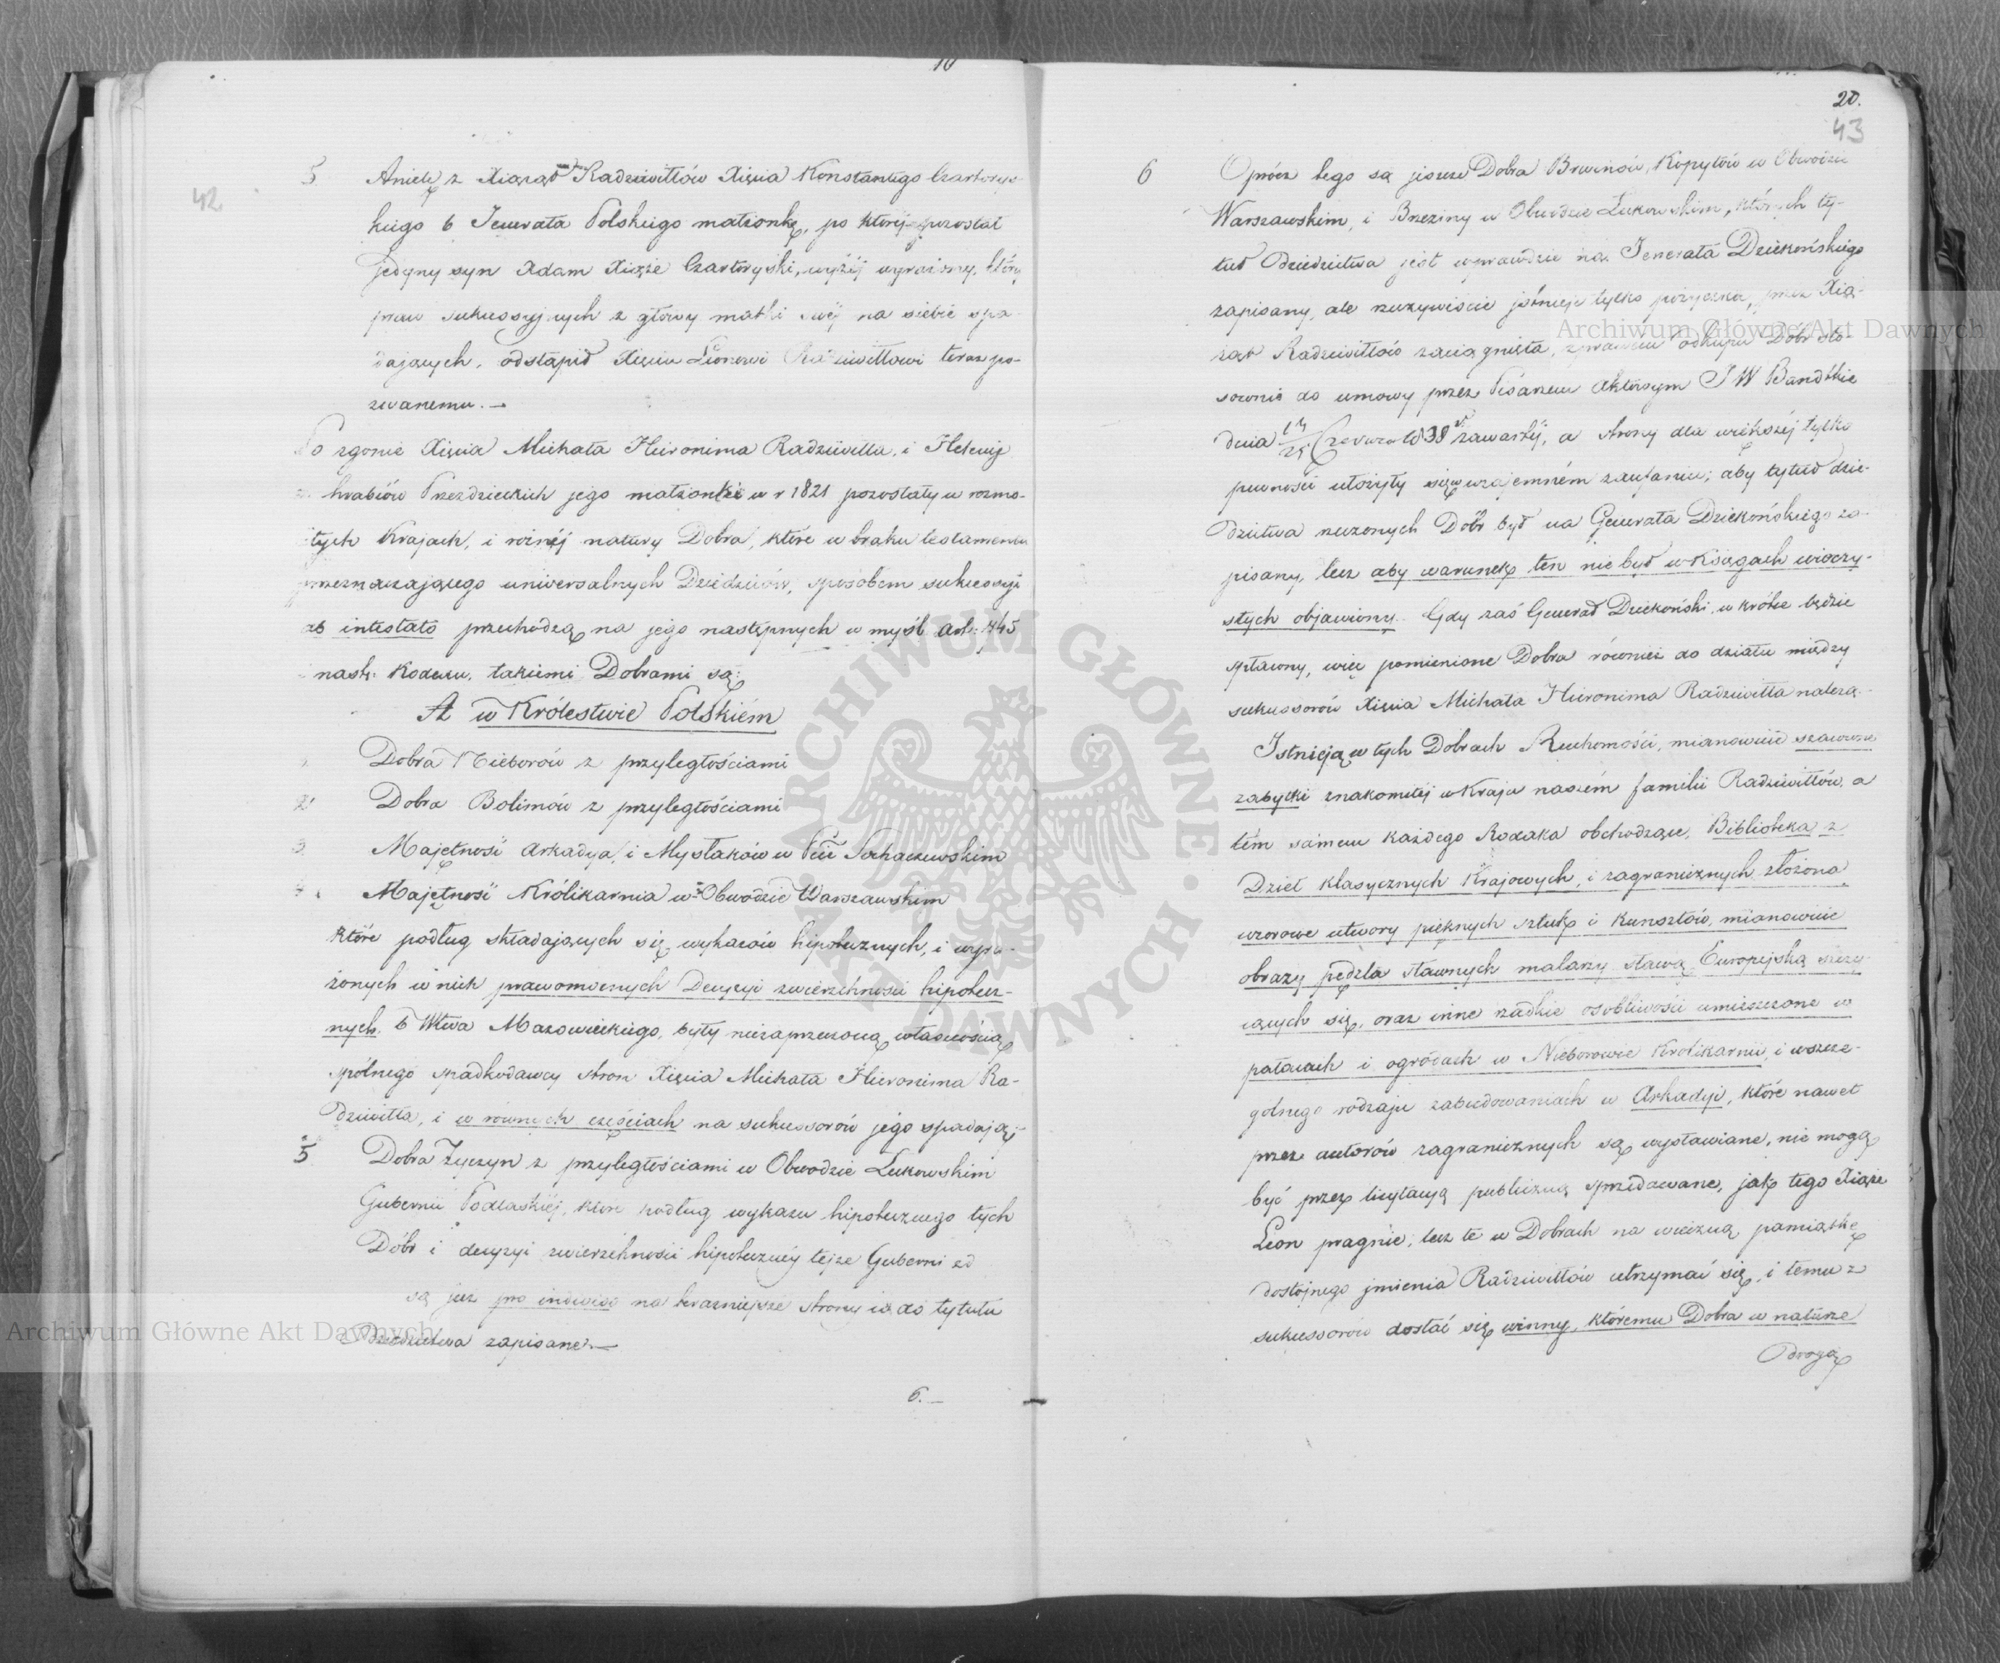 42.
5 Anielę z Xiążąt Radziwiłłów Xięcia Konstantego Czartorys-
kiego b Jenerała Polskiego małżonkę, po której pozostał
jedyny syn Adam Xiąże Czartoryski, wyżéj wyrażony, który
praw sukcessyjnych z głowy matki swéj na siebie spa-
dających, odstąpił Xięciu Leonowi Radziwiłłowi teraz po-
zwanemu. —
Po zgonie Xięcia Michała Hieronima Radziwiłła, i Heleny
z hrabiów Przezdzieckich jego małżonki w r 1821 pozostały w rozmai-
tych Krajach, i róźnéj natury Dobra, które w braku testamentu
przeznaczającego uniwersalnych Dziedziców, sposobem sukcessyi
ab intestato przechodzą na jego następnych w myśl art: 745
i nast: Kodexu, takiemi Dobrami są:
A w Królestwie Polskiém
Dobra Nieborów z przyległościami
2. Dobra Bolimów z przyległościami
3. Majętność Arkadya, i Mysłaków w Pcie Sochaczewskim
4. Majętność Królikarnia w Obwodzie Warszawskim
które podług składających się wykazów hipotecznych, i wyra-
żonych w nich prawomocnych Decyzyi zwierzchności hipotecz-
nych b Wtwa Mazowieckiego, były niezaprzeczoną własnością
spólnego spadkodawcy stron Xięcia Michała Hieronima Ra-
dziwiłła, i w równych częściach na sukcessorów jego spadają;
5 Dobra Zyczyn z przyległościami w Obwodzie Łukowskim
Gubernii Podlaskiéj, które podług wykazu hipotecznego tych
Dóbr i decyzyi zwierzchności hipotecznéj tejże Guberni
są już pro indiviso na teraźniejsze strony co do tytułu
Dziedzictwa zapisane. —
6. —
20.
43
6 Oprócz tego są jeszcze Dobra Brwinów, Kopytów w Obwodzie
Warszawskim, i Brzeziny w Obwodzie Łukowskim, których ty-
tuł Dziedzictwa jest wprawdzie na Jenerała Dziekońskiego
zapisany, ale rzeczywiście istnieje tylko pożyczka, przez Xią-
żąt Radziwiłłów zaciągnięta, z prawem odkupu Dóbr sto-
sownie do umowy przez Pisarzem Aktowym JW Bandtkie
dnia 13/25 Czerwca 1838 r zawartéj, a strony dla większéj tylko
pewności ułożyły się w wzajemném zaufaniu; aby tytuł dzie-
dzictwa rzeczonych Dóbr był na Generała Dziekońskiego za-
pisany, lecz aby warunek ten nie był w Księgach wieczy-
stych objawiony. Gdy zaś Generał Dziekoński, w krótce będzie
spłacony, więc pomienione Dobra również do działu między
sukcessorów Xięcia Michała Hieronima Radziwiłła należą.
Istnieją w tych Dobrach Ruchomości, mianowicie szacowne
zabytki znakomitéj w Kraju naszém familii Radziwiłłów, a
tém samem każdego Rodaka obchodzące, Biblioteka z
Dzieł klasycznych Krajowych, i zagranicznych złożona,
wzorowe utwory pięknych sztuk i Kunsztów, mianowicie
obrazy pędzla sławnych malarzy sławą Europejską szczy-
cących się, oraz inne rzadkie osobliwości umieszczone w
pałacach i ogrodach w Nieborowie Królikarni, i wszcze-
gólnego rodzaju zabudowaniach w Arkadyi, które nawet
przez autorów zagranicznych są wystawiane, nie mogą
być przez licytacyą publiczną sprzedawane, jak tego Xiąże
Leon pragnie, lecz te w Dobrach na wieczną pamiątkę
dostojnego imienia Radziwiłłów utrzymać się, i temu z
sukcessorów dostać się winny, któremu Dobra w naturze
Drogą
Archiwum Główne Akt Dawnych
Archiwum Główne Akt Dawnych
ARCHIWUM GŁÓWNE AKT DAWNYCH